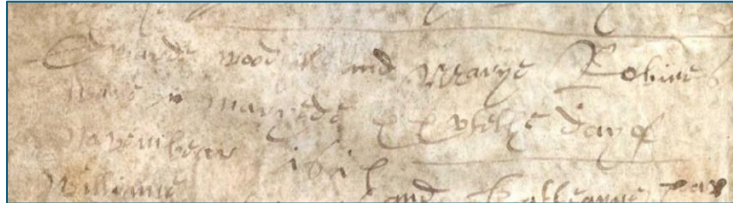 Edwarde wood and Marye Robins
were marrede xxvthe day of
Novembear 161
Williame and Katherine